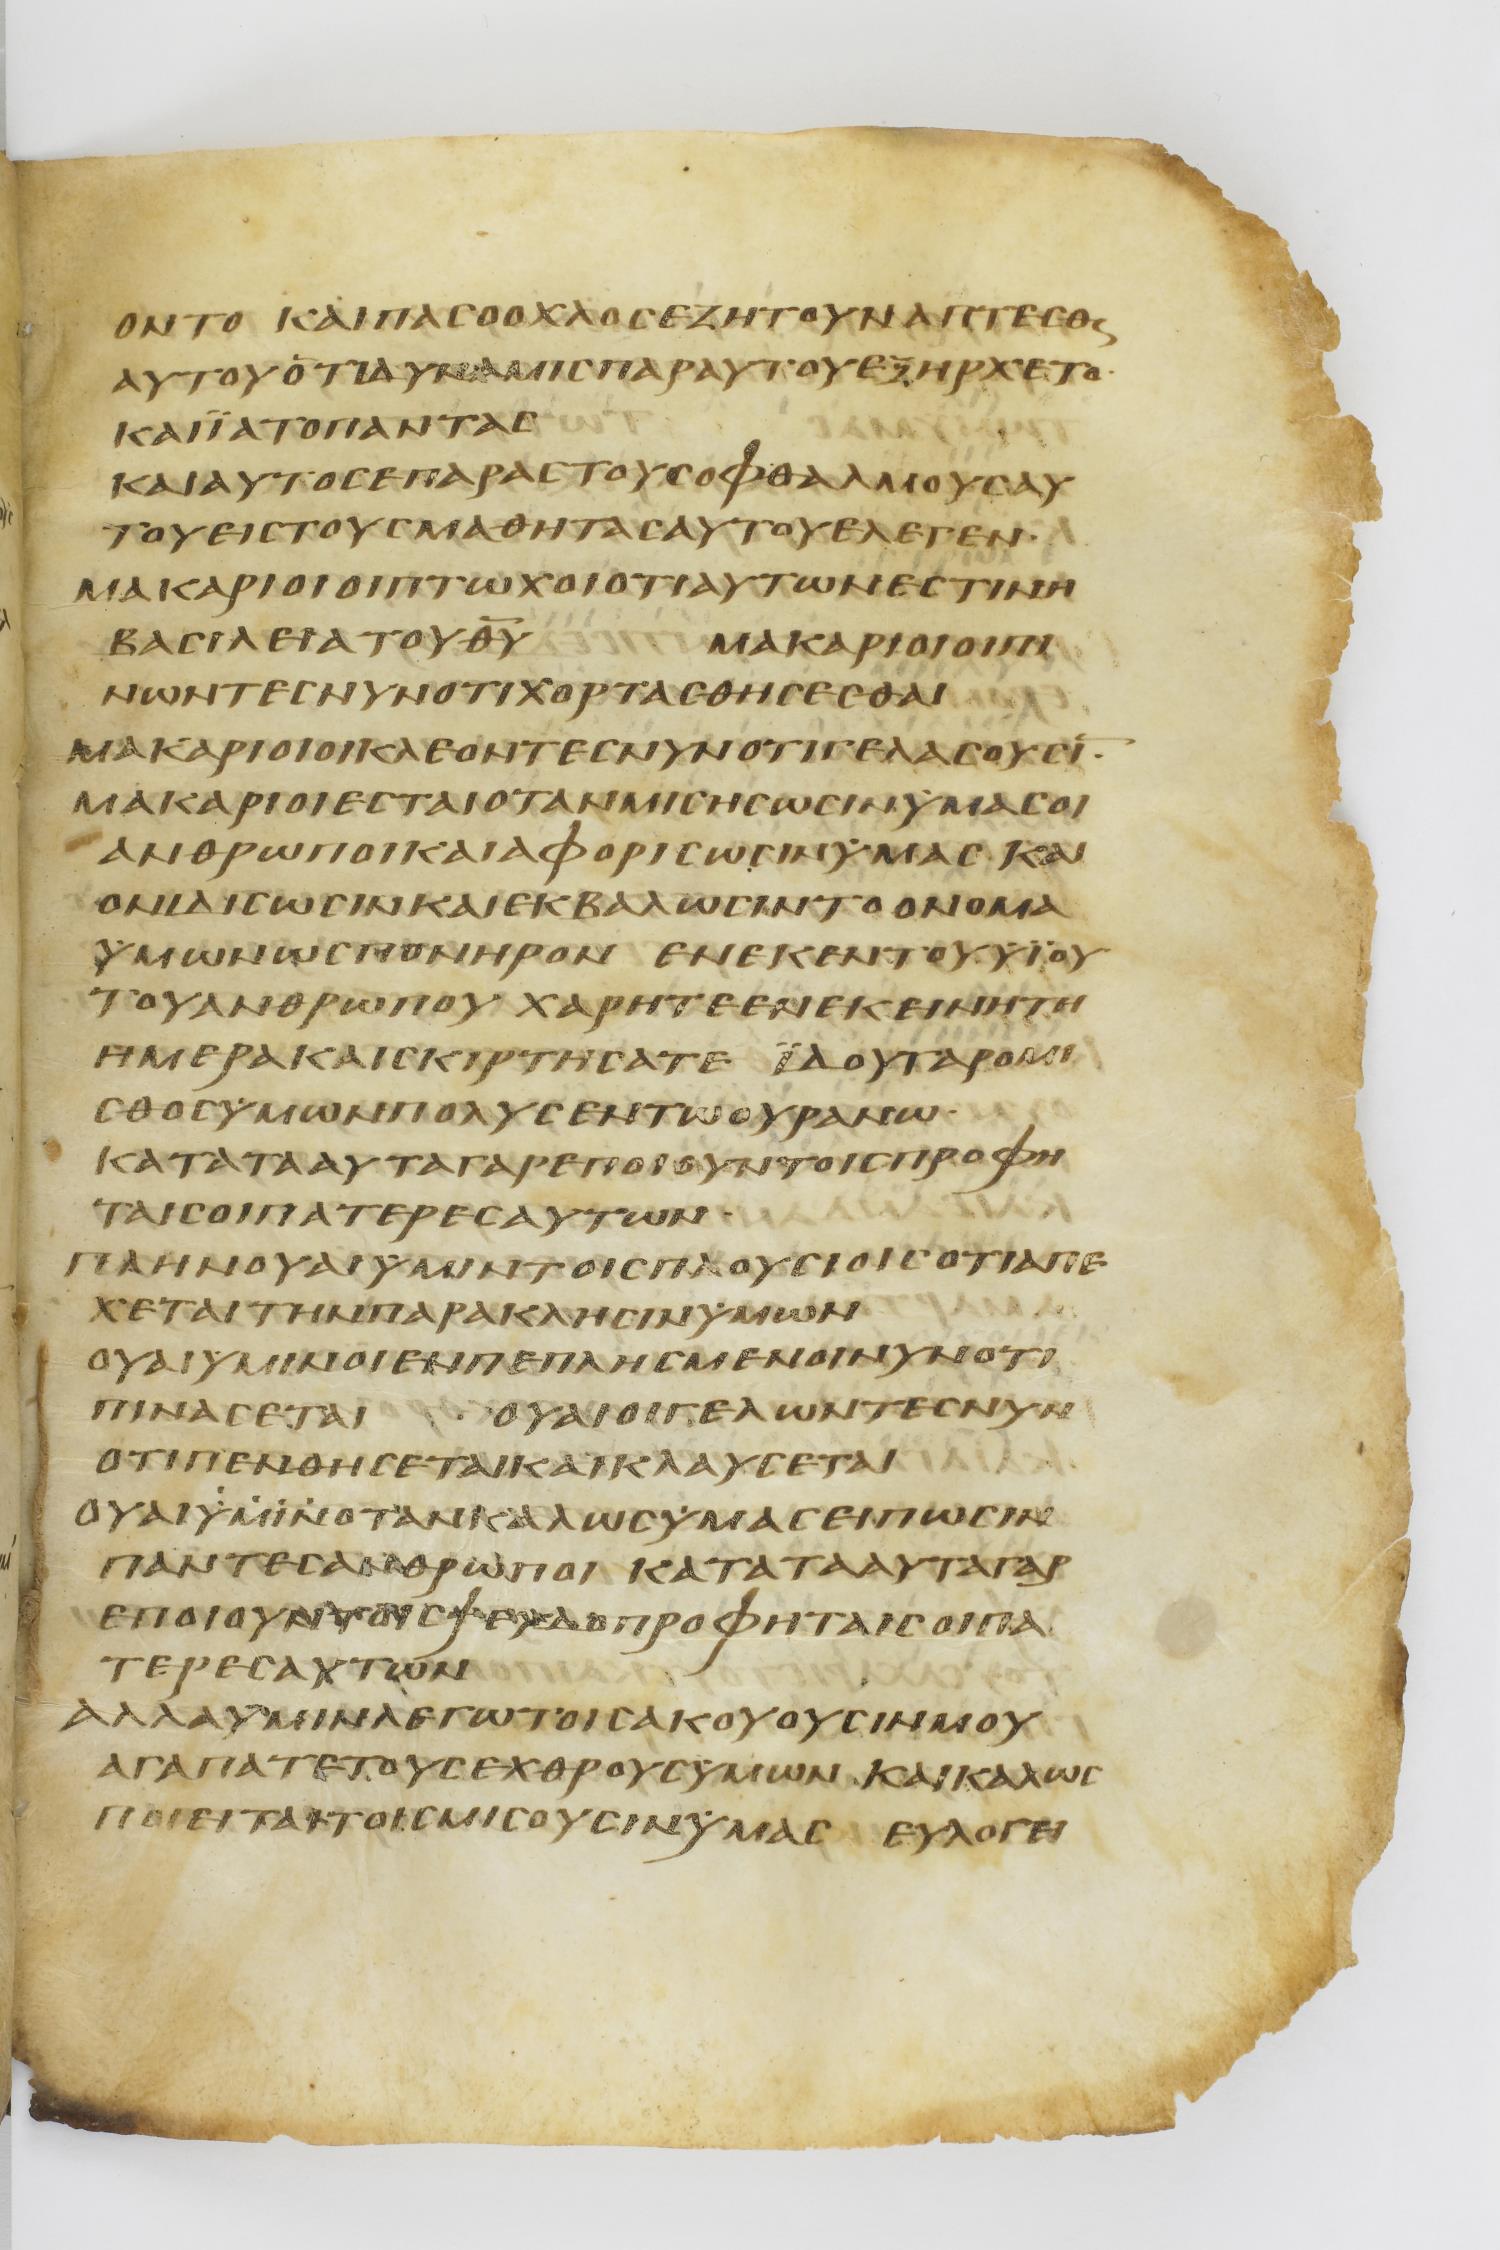 ΟΝΤΟ ΚΑΙΠΑCΟΟΧΛΟCΕΖΗΤΟΥΝΑΠΤΕCΘϚ
ΑΥΤΟΥΟΤΙΔΥΝΑΜΙCΠΑΡΑΥΤΟΥΕΞΗΡΧΕΤΟ·
ΚΑΙΪΑΤΟΠΑΝΤΑC
ΚΑΙΑΥΤΟCΕΠΑΡΑCΤΟΥCΟΦΘΑΛΜΟΥCΑΥ
ΤΟΥΕΙCΤΟΥCΜΑΘΗΤΑCΑΥΤΟΥΕΛΕΓΕΝ·
ΜΑΚΑΡΙΟΙΟΙΠΤΩΧΟΙΟΤΙΑΥΤΩΝΕCΤΙΝΗ
ΒΑCΙΛΕΙΑΤΟΥΘ̅Υ̅ ΜΑΚΑΡΙΟΙΟΙΠΙ
ΝΩΝΤΕCΝΥΝΟΤΙΧΟΡΤΑCΘΗCΕCΘΑΙ
ΜΑΚΑΡΙΟΙΟΙΚΛΕΟΝΤΕCΝΥΝΟΤΙΓΕΛΑCΟΥCΙ̅·
ΜΑΚΑΡΙΟΙΕCΤΑΙΟΤΑΝΜΙCΗCΩCΙΝΫΜΑCΟΙ
ΑΝΘΡΩΠΟΙΚΑΙΑΦΟΡΙCΩCΙΝΫΜΑC ΚΑΙ
ΟΝΙΔΙCΩCΙΝΚΑΙΕΚΒΑΛΩCΙΝΤΟΟΝΟΜΑ
ΫΜΩΝΩCΠΟΝΗΡΟΝ ΕΝΕΚΕΝΤΟΥΥΪΟΥ
ΤΟΥΑΝΘΡΩΠΟΥ ΧΑΡΗΤΕΕΝΕΚΕΙΝΗΤΗ
ΗΜΕΡΑΚΑΙCΚΙΡΤΗCΑΤΕ ΪΔΟΥΓΑΡΟΜΙ
CΘΟCΫΜΩΝΠΟΛΥCΕΝΤΩΟΥΡΑΝΩ·
ΚΑΤΑΤΑΑΥΤΑΓΑΡΕΠΟΙΟΥΝΤΟΙCΠΡΟΦΗ
ΤΑΙCΟΙΠΑΤΕΡΕCΑΥΤΩΝ·
ΠΛΗΝΟΥΑΙΫΜΙΝΤΟΙCΠΛΟΥCΙΟΙCΟΤΙΑΠΕ
ΧΕΤΑΙΤΗΝΠΑΡΑΚΛΗCΙΝΫΜΩΝ
ΟΥΑΙΫΜΙΝΟΙΕΝΠΕΠΛΗCΜΕΝΟΙΝΥΝΟΤΙ
ΠΙΝΑCΕΤΑΙ · ΟΥΑΙΟΙΓΕΛΩΝΤΕCΝΥΝ
ΟΤΙΠΕΝΘΗCΕΤΑΙΚΑΙΚΛΑΥCΕΤΑΙ
ΟΥΑΙΫΜΙΝΟΤΑΝΚΑΛΩCΫΜΑCΕΙΠΩCΙΝ
ΠΑΝΤΕCΑΝΘΡΩΠΟΙ ΚΑΤΑΤΑΑΥΤΑΓΑΡ
ΕΠΟΙΟΥΝΤΟΙCΨΕΥΔΟΠΡΟΦΗΤΑΙCΟΙΠΑ
ΤΕΡΕCΑΥΤΩΝ
ΑΛΛΑΥΜΙΝΛΕΓΩΤΟΙCΑΚΟΥΟΥCΙΝΜΟΥ
ΑΓΑΠΑΤΕΤΟΥCΕΧΘΡΟΥCΫΜΩΝ ΚΑΙΚΑΛΩC
ΠΟΙΕΙΤΑΙΤΟΙCΜΙCΟΥCΙΝΫΜΑC ΕΥΛΟΓΕΙ